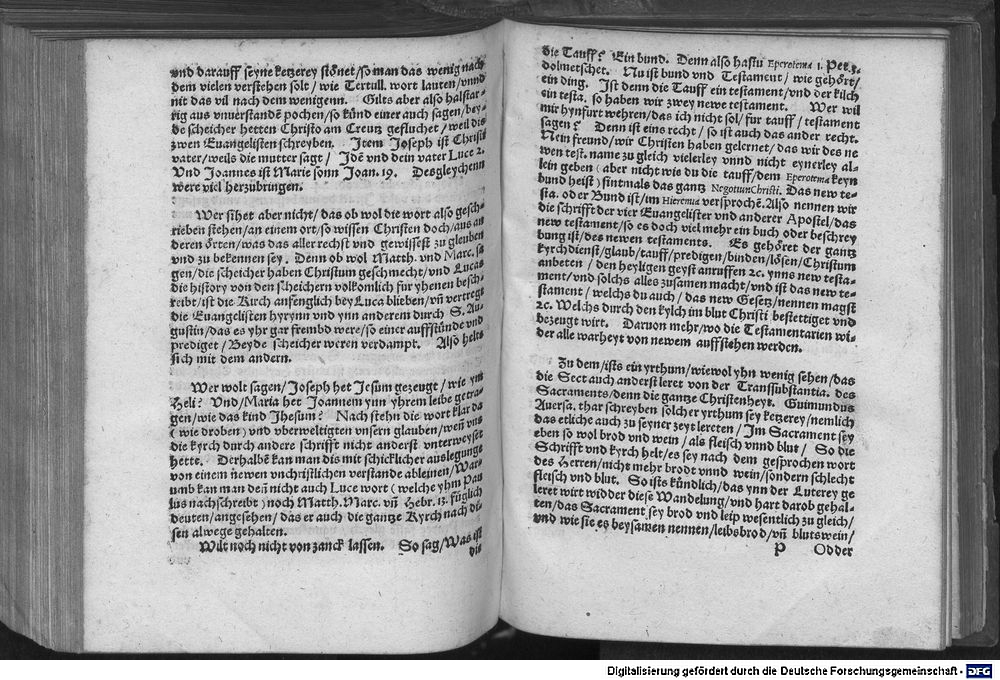 vnd darauff seyne ketzerey stönet/so man das wenig nach
dem vielen verstehen solt/ wie Tertull. wort lauten/vnnd
nit das vil nach dem wenigenn. Gilts aber also halstar-
rig aus vnuerstandē pochen/so künd einer auch sagen/bey-
de scheicher hetten Christo am Creutz gefluchet/ weil dis
zwen Euangelisten schreyben. Item Joseph ist Christi
vater/weils die mutter sagt/ Jdē vnd dein vater Luce 2.
Vnd Joannes ist Marie sonn Joan. 19. Desgleychenn
were viel herzübringen.
Wer sihet aber nicht/ das ob wol die wort also gesch-
rieben stehen/an einem ort/so wissen Christen doch/aus an
deren örten/was das aller rechst vnd gewissest zu glauben
vnd zu bekennen sey. Denn ob wol Matth. vnd Marc. sa
gen/die scheicher haben Christum geschmecht/vnd Lucas
die history von den scheichern volkomlich für yhenen besch-
reibt/ist die Kirch anfenglich bey Luca blieben/vn̄ vertregt
die Euangelisten hyrynn vnd ynn anderem durch S. Au-
gustin/das es yhr gar frembd were/so einer auffstünde vnd
prediget/ Beyde scheicher weren verdampt. Also helts
sich mit dem andern.
Wer wolt sagen/Joseph het Jesum gezeugt/ wie ynn
Heli? Vnd/Maria het Joannem ynn yhrem leibe getra-
gen/wie das kind Jhesum? Nach stehn die wort klar da
(wie droben) vnd vberweltigten vnsern glauben/wen̄ vns
die kyrch durch andere schrifft nicht anderst vnterweyset
hette. Derhalbē kan man dis mit schicklicher auslegunge
von einem newen vnchristlichen verstande ableinen/War-
umb kan man den̄ nicht auch Luce wort (welche yhm Pau
lus nachschreibt) noch Matth. Marc. vn̄ Hebr. 13. füglich
deuten/angesehen/ das er auch die gantze Kyrch nach di-
sen alwege gehalten.
Wilt noch nicht von zanck lassen. So sag/Was ist
die
die Tauff? Ein bund. Denn also hastu Eperotema 1. Pet. 3.
dolmetschet. Nu ist bund vnd Testament/ wie gehört/
ein ding. Ist denn die Tauff ein testament/vnd der kilch
ein testa. so haben wir zwey newe testament. Wer wil
mir hynfurt wehren/das ich nicht sol/für tauff/ testament
sagen? Denn ist eins recht/ so ist auch das ander recht.
Nein freund/wir Christen haben gelernet/das wir des ne
wen test. name zu gleich vielerley vnnd nicht eynerley al-
lein geben (aber nicht wie du die tauff/dem Eperotema keyn
bund heist) sintmals das gantz Negotium Christi. Das new te-
sta. oder Bund ist/im Hieremia versprochē. Also nennen wir
die schrifft der vier Euangelister vnd anderer Apostel/das
new testament/so es doch viel mehr ein buch oder beschrey
bung ist/des newen testaments. Es gehöret der gantz
kyrchdienst/glaub/tauff/predigen/binden/lösen/Christum
anbeten/ den heyligen geyst anruffen ꝛc. ynns new testa-
ment/vnd solchs alles zusamen macht/vnd ist das new te-
stament/ welchs du auch/ das new Gesetz/nennen magst
ꝛc. Welchs durch den kylch im blut Christi bestettiget vnd
bezeugt wirt. Daruon mehr/wo die Testamentarien wi-
der alle warheyt von newem auffstehen werden.
Zu dem/ists ein yrthum/wiewol yhn wenig sehen/das
die Sect auch anderst leret von der Transsubstantia. des
Sacraments/denn die gantze Christenheyt. Guimundus
Auersa. thar schreyben solcher yrthum sey ketzerey/nemlich
das etliche auch zu seyner zeyt lereten/ Im Sacrament sey
eben so wol brod vnd wein/ als fleisch vnnd blut/ So die
Schrifft vnd kyrch helt/es sey nach dem gesprochen wort
des Herren/nicht mehr brodt vnnd wein/sondern schlecht
fleisch vnd blut. So ists kündlich/das ynn der Luterey ge
leret wirt widder diese Wandelung/vnd hart darob gehal-
ten/das Sacrament sey brod vnd leip wesentlich zu gleich/
vnd wie sie es beysamen nennen/leibsbrod/vn̄ blutswein/
P Odder
Digitalisierung gefördert durch die Deutsche Forschungsgemeinschaft - DFG